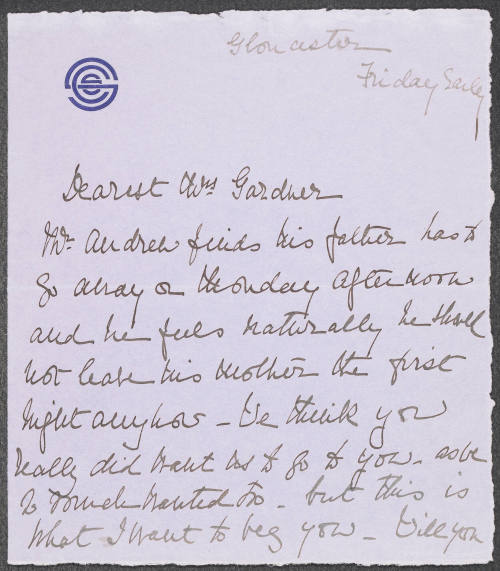 Gloucester
Friday Early
Dearest Mrs Gardner
Mr Andrew finds his father has to
go away on Monday afternoon
and he feels naturally he should
not leave his mother the first
night anyhow - We think you
really did want us to go to you - as we
so much wanted to - but this is
what I want to beg you - Will you